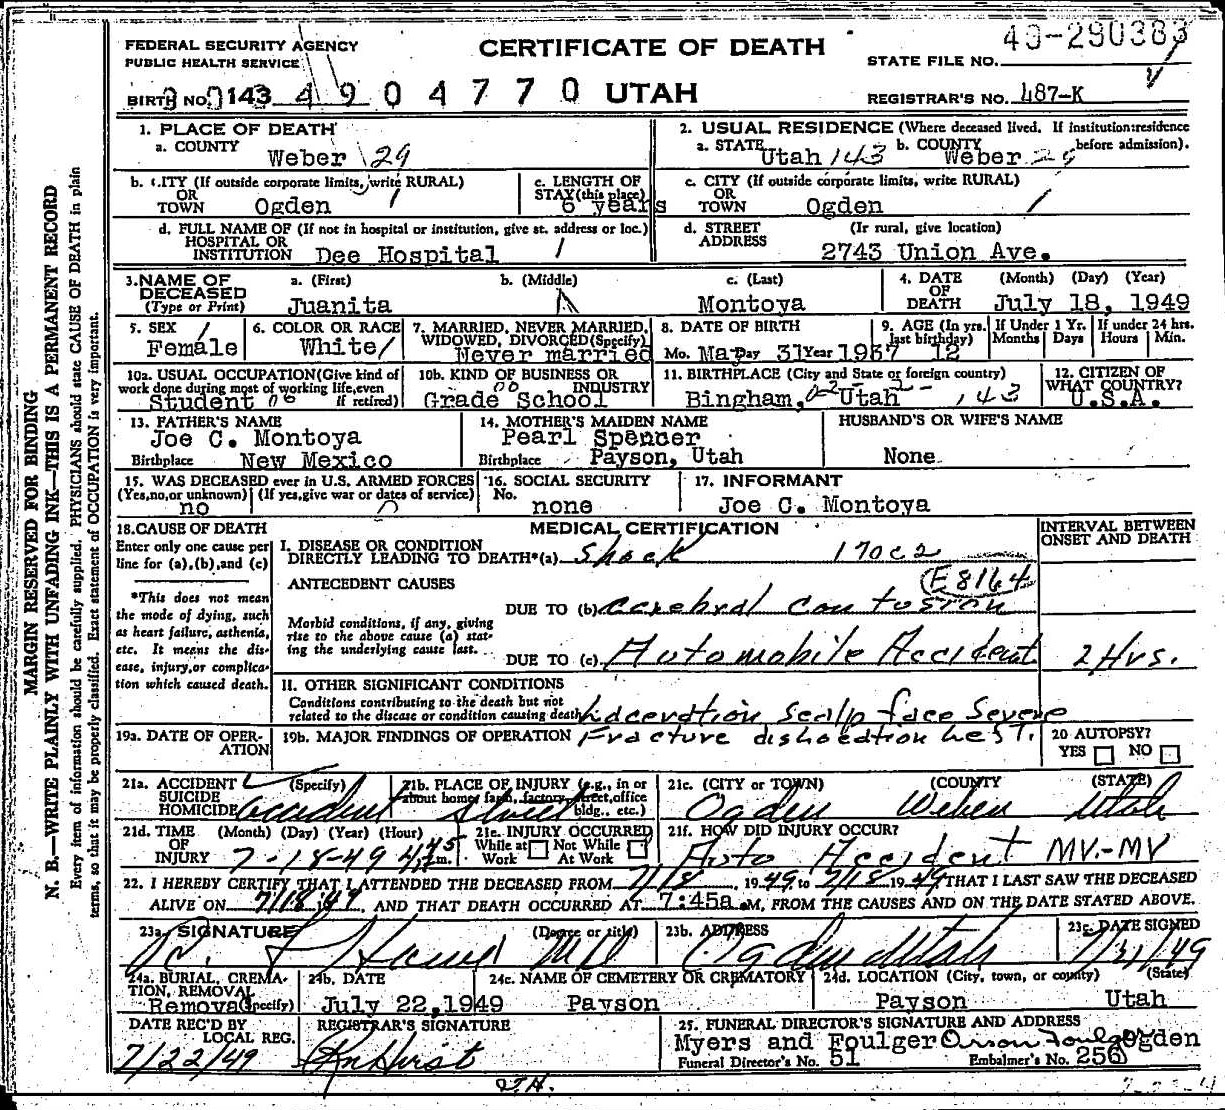 MARGIN RESERVED FOR BINDING
N. B.—WRITE PLAINLY WITH UNFADING INK—THIS IS A PERMANENT RECORD
Every item of information should be carefully supplied. PHYSICIANS should state CAUSE OF DEATH in plain
terms, so that it may be properly classified. Exact statement of OCCUPATION is very important.
FEDERAL SECURITY AGENCY
PUBLIC HEALTH SERVICE
CERTIFICATE OF DEATH
49-290383
STATE FILE NO.
BIRTH NO. 143 4904770 UTAH
REGISTRAR'S NO. 487-K
1. PLACE OF DEATH
a. COUNTY Weber 29
2. USUAL RESIDENCE (Where deceased lived. If institution:residence before admission).
a. STATE Utah 143 b. COUNTY Weber 29
b. CITY (If outside corporate limits, write RURAL)
OR TOWN Ogden 1
c. LENGTH OF STAY (this place) 6 years
c. CITY (If outside corporate limits, write RURAL)
OR TOWN Ogden 1
d. FULL NAME OF (If not in hospital or institution, give st. address or loc.)
HOSPITAL OR INSTITUTION Dee Hospital 1
d. STREET ADDRESS (If rural, give location)
2743 Union Ave.
3. NAME OF DECEASED (Type or Print)
a. (First) Juanita b. (Middle) c. (Last) Montoya
4. DATE OF DEATH (Month) (Day) (Year)
July 18, 1949
5. SEX Female
6. COLOR OR RACE White
7. MARRIED, NEVER MARRIED, WIDOWED, DIVORCED (Specify) Never married
8. DATE OF BIRTH
Mo. May Day 31 Year 1937
9. AGE (In yrs. last birthday) 12
If Under 1 Yr. Months Days
If under 24 hrs. Hours Min.
10a. USUAL OCCUPATION (Give kind of work done during most of working life, even if retired) Student
10b. KIND OF BUSINESS OR INDUSTRY Grade School
11. BIRTHPLACE (City and State or foreign country)
Bingham, Utah 143
12. CITIZEN OF WHAT COUNTRY? U.S.A.
13. FATHER'S NAME
Joe C. Montoya
Birthplace New Mexico
14. MOTHER'S MAIDEN NAME
Pearl Spencer
Birthplace Payson, Utah
HUSBAND'S OR WIFE'S NAME
None
15. WAS DECEASED ever in U.S. ARMED FORCES
(Yes, no, or unknown) (If yes, give war or dates of service)
no
16. SOCIAL SECURITY No. none
17. INFORMANT
Joe C. Montoya
18. CAUSE OF DEATH
Enter only one cause per line for (a), (b), and (c)
*This does not mean the mode of dying, such as heart failure, asthenia, etc. It means the disease, injury, or complication which caused death.
MEDICAL CERTIFICATION
INTERVAL BETWEEN ONSET AND DEATH
I. DISEASE OR CONDITION DIRECTLY LEADING TO DEATH* (a) Shock 170c2
ANTECEDENT CAUSES E8164
DUE TO (b) Cerebral Contusion
Morbid conditions, if any, giving rise to the above cause (a) stating the underlying cause last.
DUE TO (c) Automobile Accident 2 Hrs.
II. OTHER SIGNIFICANT CONDITIONS
Conditions contributing to the death but not related to the disease or condition causing death Laceration scalp face severe
19a. DATE OF OPERATION
19b. MAJOR FINDINGS OF OPERATION Fracture dislocation
20 AUTOPSY?
YES NO
21a. ACCIDENT SUICIDE HOMICIDE (Specify) accident
21b. PLACE OF INJURY (e.g., in or about home, farm, factory, street, office bldg., etc.) Street
21c. (CITY or TOWN) (COUNTY) (STATE)
Ogden Weber Utah
21d. TIME OF INJURY (Month) (Day) (Year) (Hour)
7-18-49
21e. INJURY OCCURRED
While at Work Not While At Work
21f. HOW DID INJURY OCCUR?
Auto Accident MV.-MV
22. I HEREBY CERTIFY THAT I ATTENDED THE DECEASED FROM 7/18 1949 to 7/18 1949 THAT I LAST SAW THE DECEASED
ALIVE ON 7/18 49 AND THAT DEATH OCCURRED AT 7:45a.M, FROM THE CAUSES AND ON THE DATE STATED ABOVE.
23a. SIGNATURE (Degree or title) MD
23b. ADDRESS Ogden Utah
23c. DATE SIGNED 7/21/49
24a. BURIAL, CREMATION, REMOVAL (Specify) Removal
24b. DATE
July 22, 1949
24c. NAME OF CEMETERY OR CREMATORY
Payson
24d. LOCATION (City, town, or county) (State)
Payson Utah
DATE REC'D BY LOCAL REG.
7/22/49
REGISTRAR'S SIGNATURE
25. FUNERAL DIRECTOR'S SIGNATURE AND ADDRESS
Myers and Foulger Orson Foulger Ogden
Funeral Director's No. 51 Embalmer's No. 256